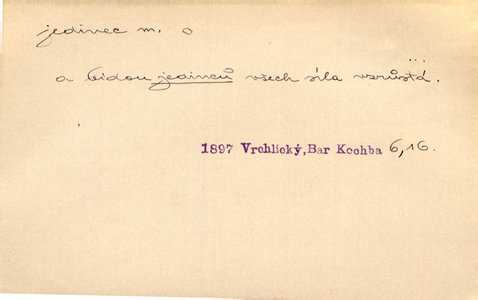 jedinec m. o
...
a bidou jedinců všech síla vzrůstá.
1897 Vrchlický, Bar Kochba 6,16.